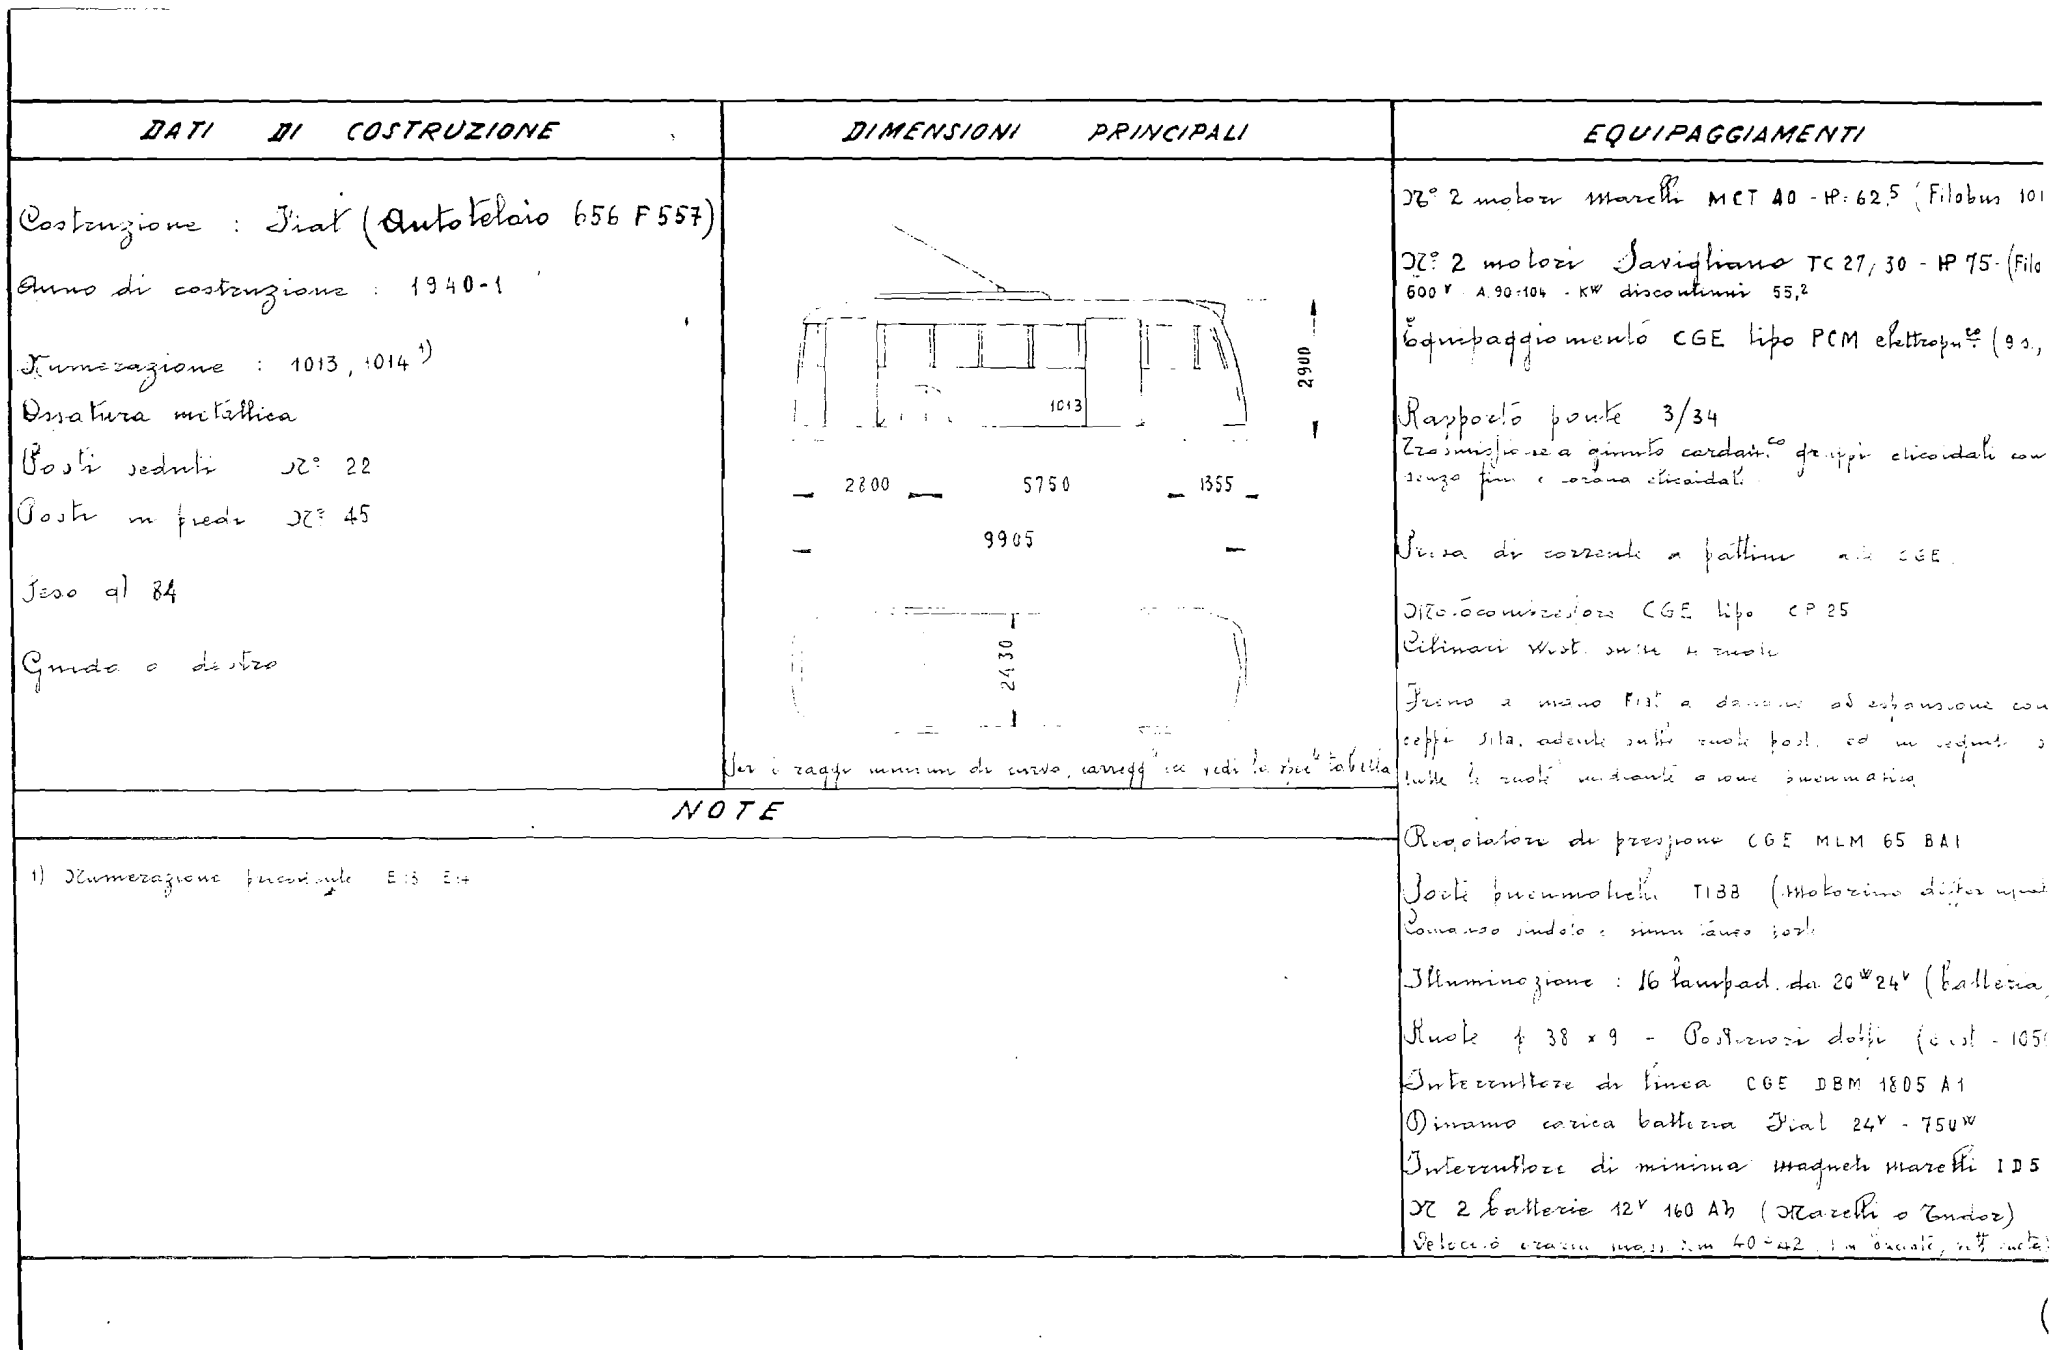 DATI DI COSTRUZIONE
Costruzione : Fiat (Autotelaio 656 F 557)
Anno di costruzione : 1940-1
Numerazione : 1013, 1014 1)
Ossatura metallica
Posti seduti N° 22
Posti in piedi N° 45
Peso ql 84
Guida a destra
DIMENSIONI PRINCIPALI
1013
2900
2800 5750 1355
9905
2430
Per i raggi minimi di curva, carregg ecc vedi la tabella
NOTE
1) Numerazione precedente E13 E14
EQUIPAGGIAMENTI
N° 2 motori Marelli MCT 40 - HP: 62,5 (Filobus 101
N° 2 motori Savigliano TC 27/30 - HP 75 - (Filo
600 V A. 90-104 - KW discontinui 55,2
Equipaggiamento CGE tipo PCM elettropn.co (9 s.,
Rapporto ponte 3/34
Trasmissione a giunto cardan.co gruppi elicoidali con
senza fine e corona elicoidali
Presa di corrente a pattini CGE
Motocompressore CGE tipo CP 25
Cilindri West. sulle 4 ruote
Freno a mano Fiat a ad espansione con
ceppi sulle ruote post. ed in
tutte le ruote mediante pneumatica
Regolatore di pressione CGE MLM 65 BA1
Porte pneumatiche TIBB (Motorino
Comando singolo e simultaneo porte
Illuminazione : 16 lampad. da 20 W 24 V (batteria
Ruote 38 x 9 - Posteriori doppi
Interruttore di linea CGE DBM 1805 A1
Dinamo carica batteria Fiat 24 V - 750 W
Interruttore di minima Magneti Marelli ID5
N 2 batterie 12 V 160 Ah (Marelli o Tudor)
Velocità oraria mass. Km 40-42